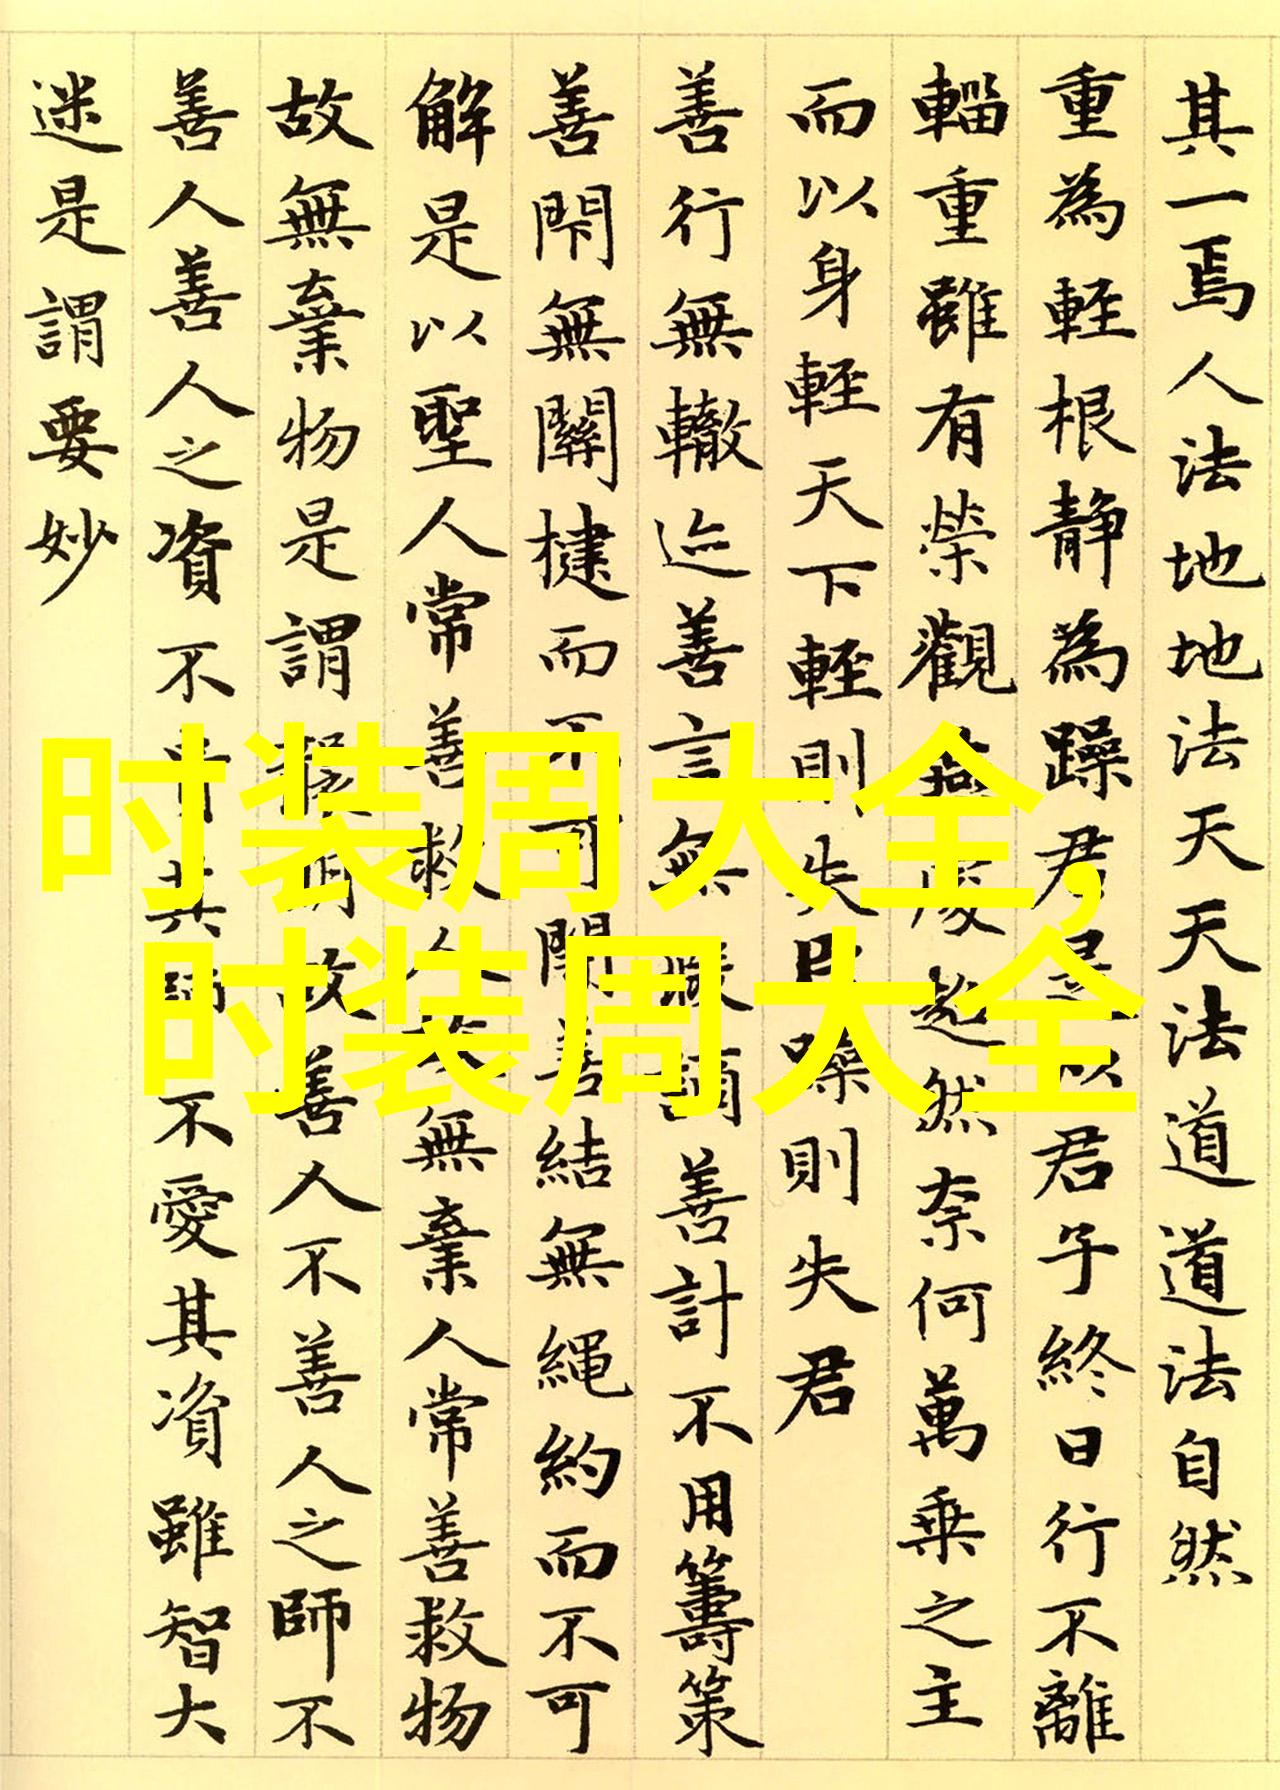 其一焉人法地地法天天法道道法自然
重為輕根静為躁君是以君子終日行不離
輜重雖有榮觀燕處超然柰何萬乗之主
而以身輕天下輕則失臣躁則失君
善行無轍迹善言無瑕謫善計不用籌策
善閇無關楗而不可開善結無繩約而不可
解是以聖人常善救人故無棄人常善救物
故無棄物是謂襲明故善人不善人之師不
善人善人之資不貴其師不愛其資雖智大
迷是謂要妙
时装周大全,
时装周大全